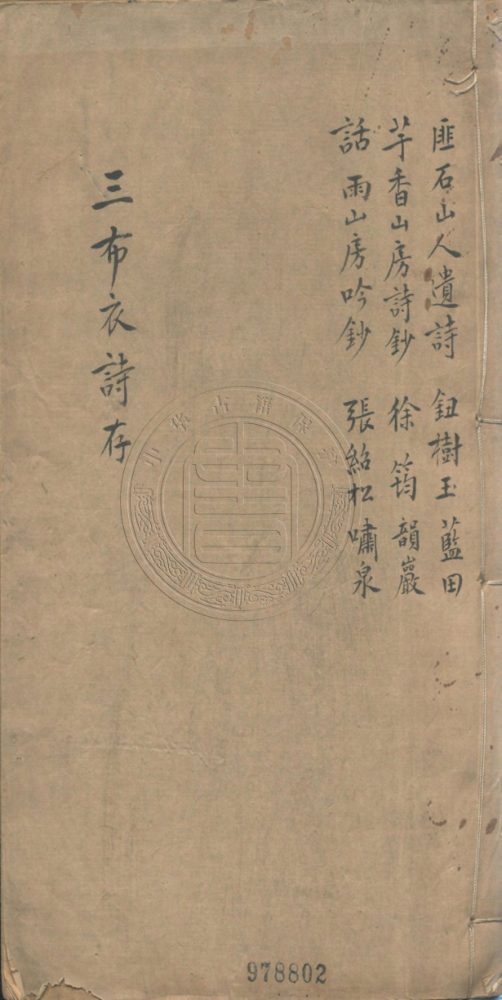 匪石山人遺詩 鈕樹玉 藍田
芋香山房詩鈔 徐筠 韻巖
話雨山房吟鈔 張紹松 嘯泉
三布衣詩存
中华古籍保
978802